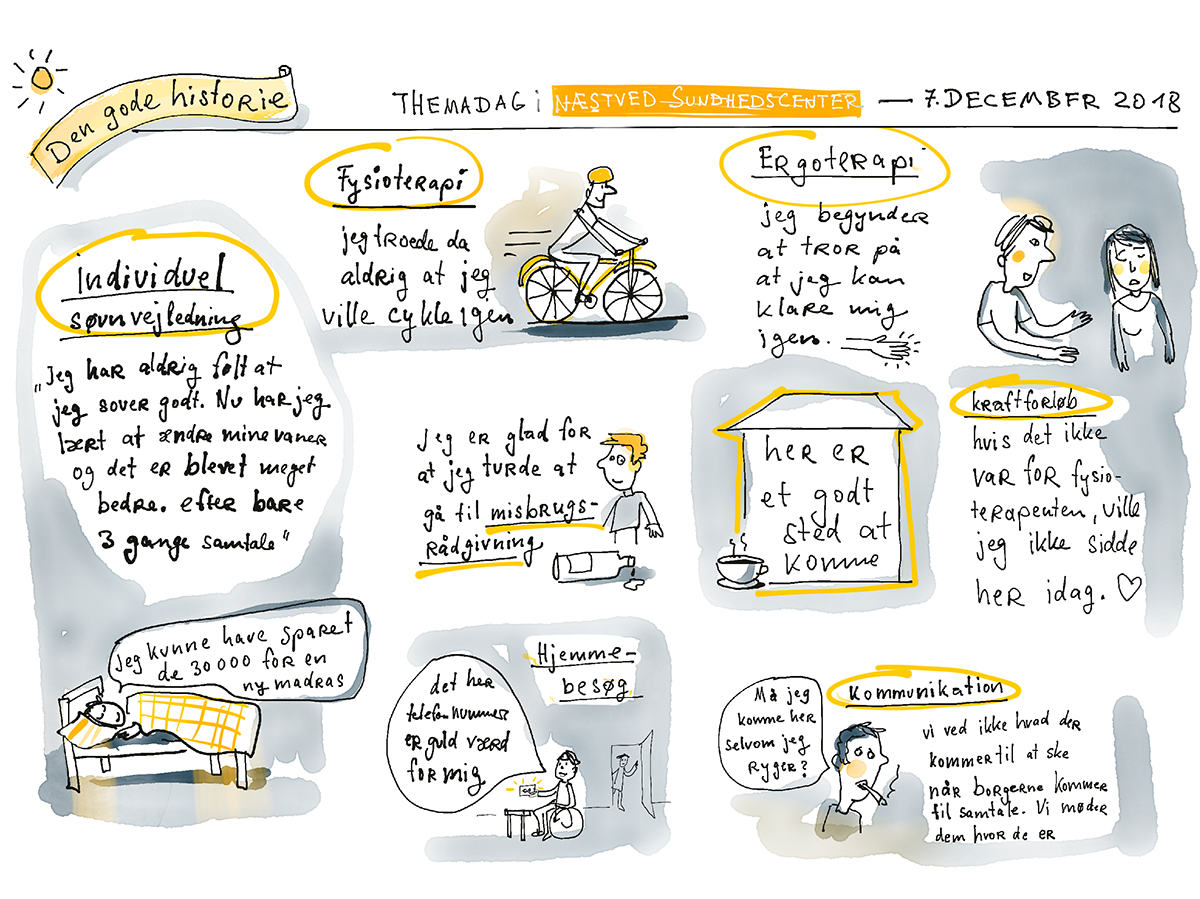 Den gode historie
THEMADAG i NÆSTVED SUNDHEDSCENTER — 7. DECEMBER 2018
Individuel
søvnvejledning
„Jeg har aldrig følt at
jeg sover godt. Nu har jeg
lært at ændre mine vaner
og det er blevet meget
bedre. efter bare
3 gange samtale"
jeg kunne have sparet
de 30 000 for en
ny madras
Fysioterapi
jeg troede da
aldrig at jeg
ville cykle igen
Jeg er glad for
at jeg turde at
gå til misbrugs-
Rådgivning
Hjemme-
besøg
det her
telefonnummer
er guld værd
for mig
Ergoterapi
jeg begynder
at tror på
at jeg kan
klare mig
igen.
her er
et godt
sted at
komme
kraftforløb
hvis det ikke
var for fysio-
terapeuten, ville
jeg ikke sidde
her idag. ♡
Kommunikation
Må jeg
komme her
selvom jeg
ryger?
vi ved ikke hvad der
kommer til at ske
når borgerne kommer
til samtale. Vi møder
dem hvor de er